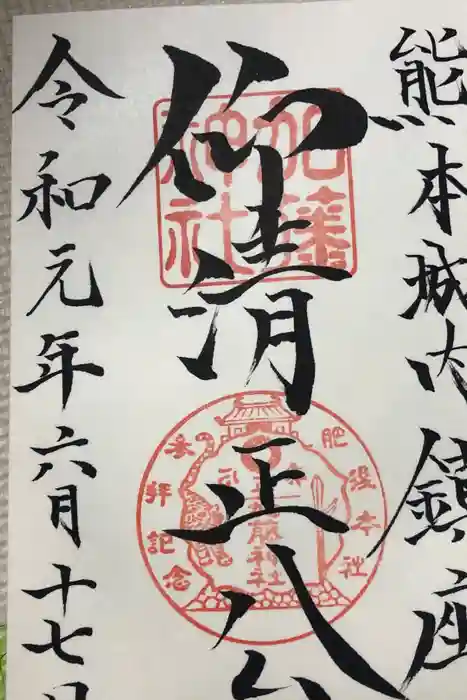 熊本城内鎮座
仰清正公
加藤神社
肥後本社
参拝記念
加藤神社
令和元年六月十七日